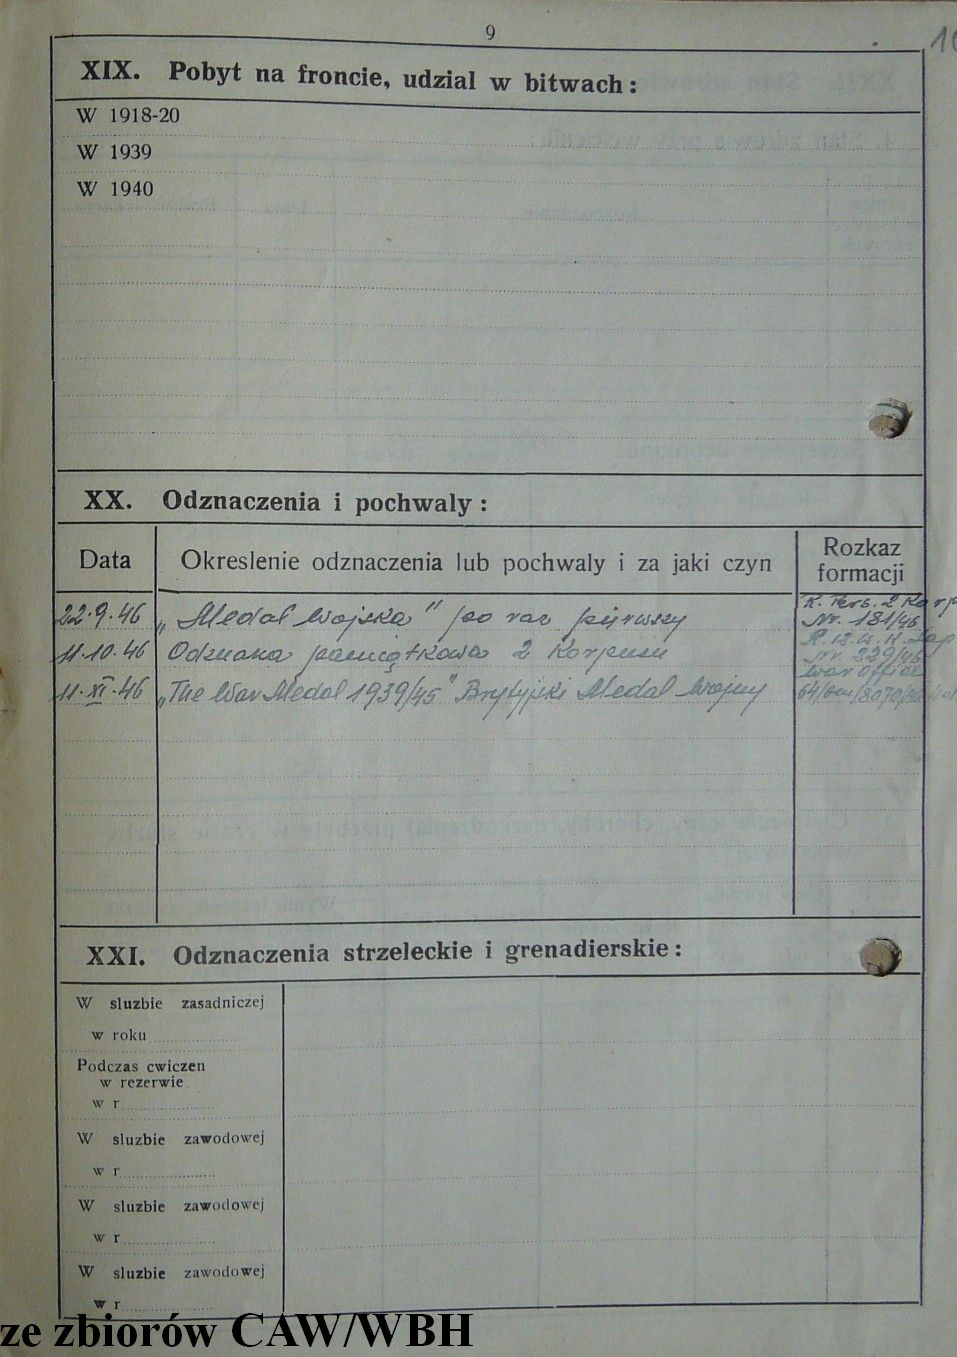 9
10
XIX. Pobyt na froncie, udzial w bitwach :
W 1918-20
W 1939
W 1940
XX. Odznaczenia i pochwaly :
Data
Okreslenie odznaczenia lub pochwaly i za jaki czyn
Rozkaz
formacji
22.9.46 „Medal Wojska" po raz pierwszy R. Pers. 2 Korp
Nr. 181/46
11.10.46 Odznaka pamiątkowa 2 Korpusu
Nr. 229/46
11.XI.46 „The War Medal 1939/45" Brytyjski Medal Wojny War Office
XXI. Odznaczenia strzeleckie i grenadierskie :
W sluzbie zasadniczej
w roku
Podczas cwiczen
w rezerwie
w r
W sluzbie zawodowej
w r
W sluzbie zawodowej
w r
W sluzbie zawodowej
w r
ze zbiorów CAW/WBH